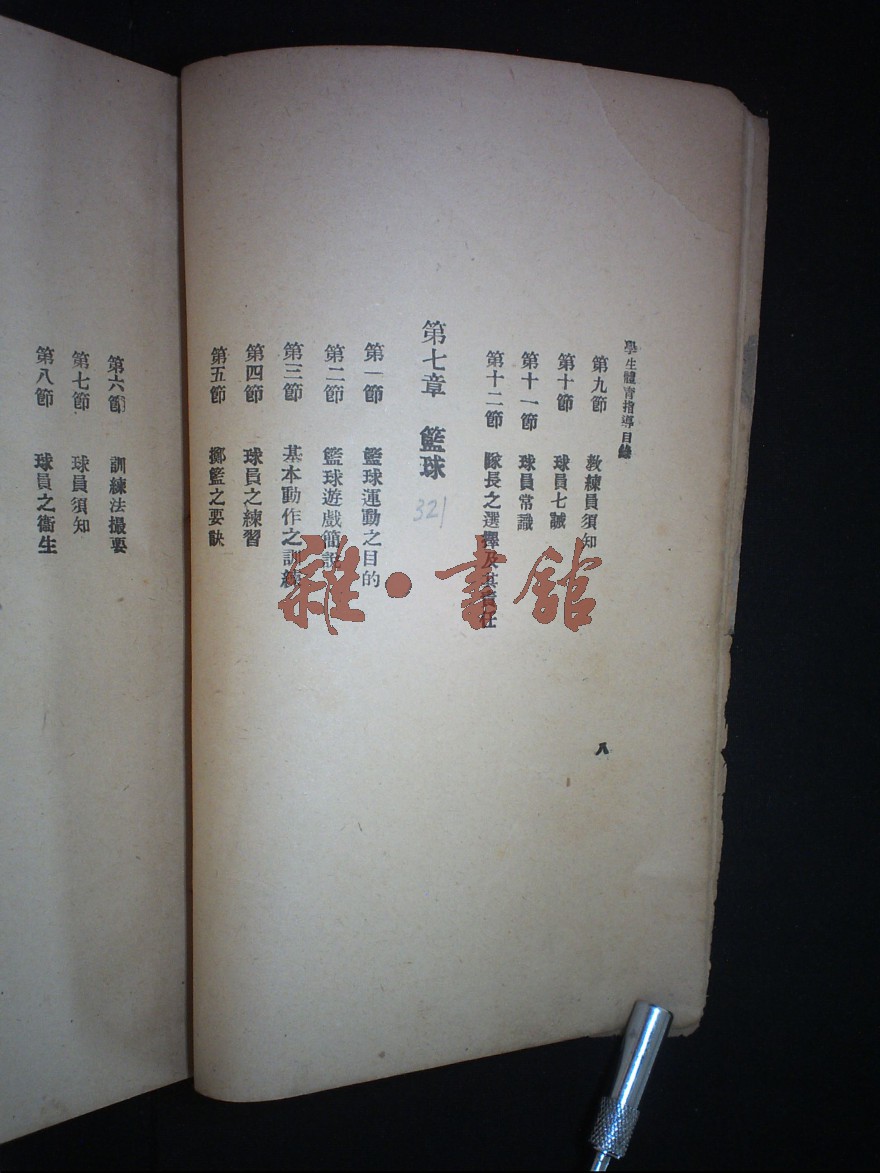 學生體育指導目錄
第九節 教練員須知
第十節 球員七誡
第十一節 球員常識
第十二節 隊長之選擇及其責任
第七章 籃球
321
第一節 籃球運動之目的
第二節 籃球遊戲簡說
第三節 基本動作之訓練
第四節 球員之練習
第五節 擲籃之要訣
八
第六節 訓練法撮要
第七節 球員須知
第八節 球員之衞生
雜·書館